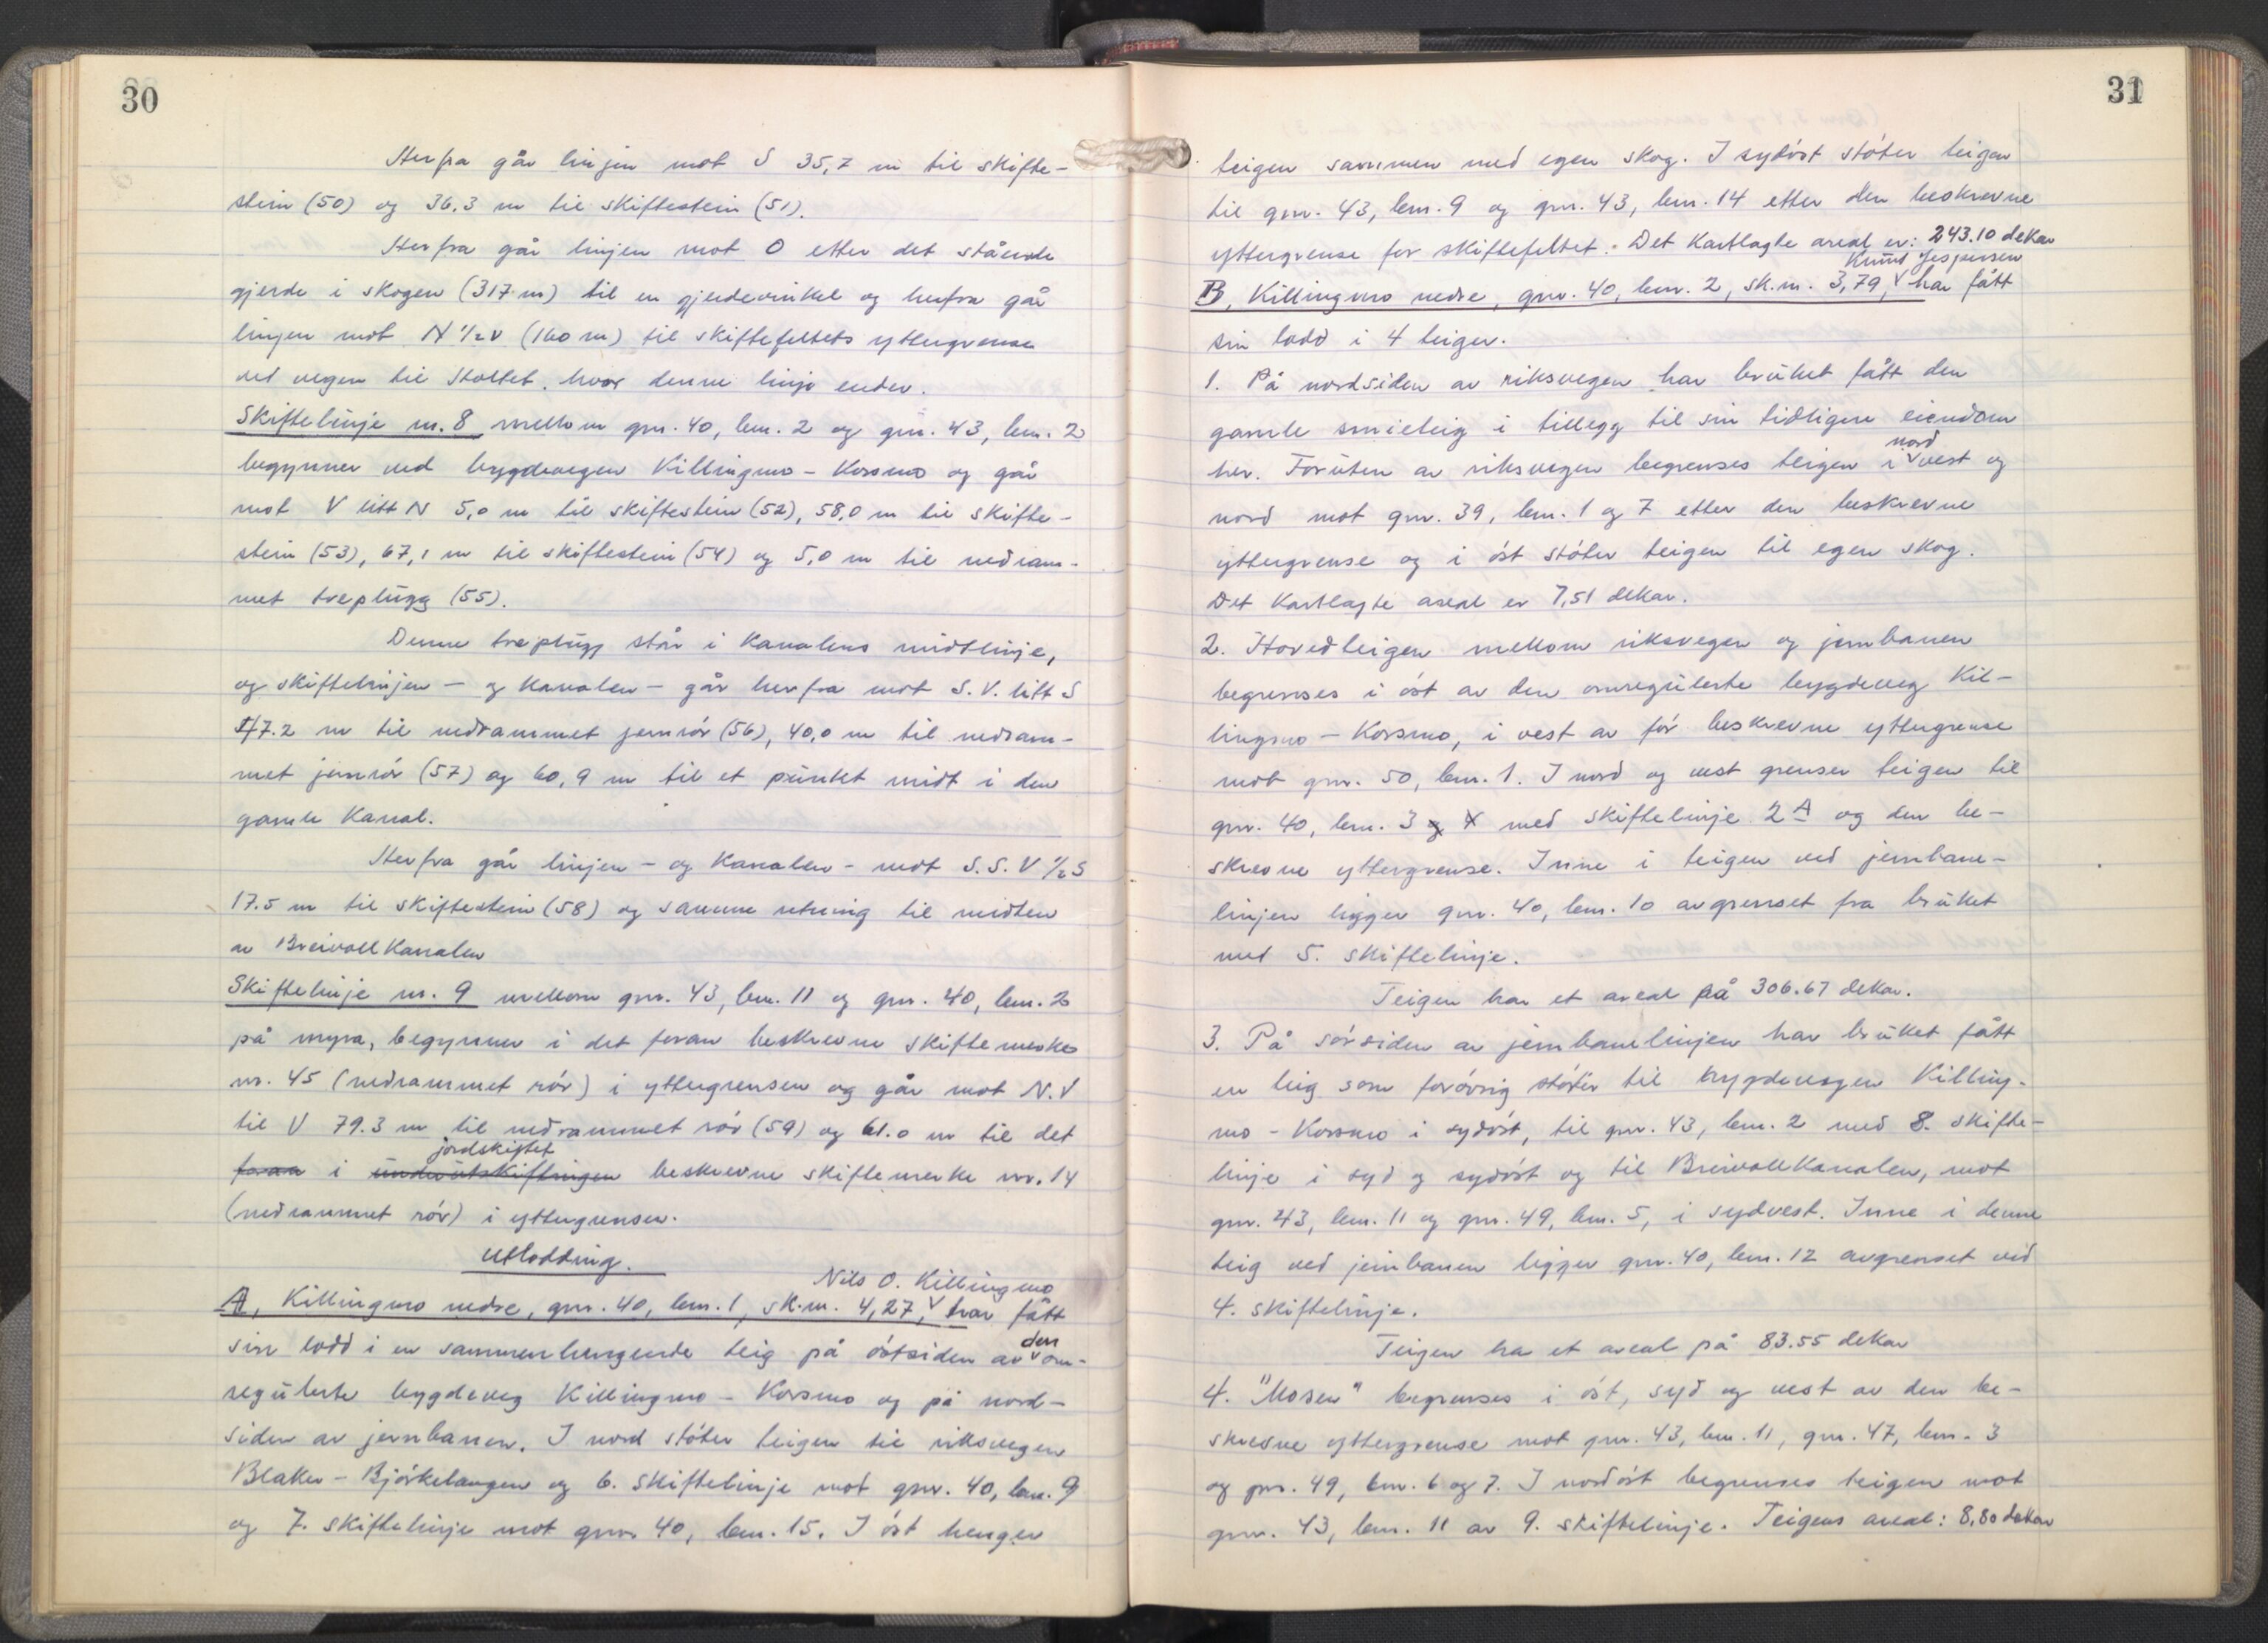 30
Herfra går linjen mot S 35,7 m til skifte-
stein (50) og 36,3 m til skiftestein (51).
Herfra går linjen mot O etter det stående
gjerde i skogen (317 m) til en gjerdevinkel og herfra går
linjen mot N ½ V (160 m) til skiftefeltets yttergrense
ved vegen til Stoltet, hvor denne linje ender.
Skiftelinje nr. 8 mellom gnr. 40, bnr. 2 og gnr. 43, bnr. 2
begynner ved bygdevegen Killingmo - Korsmo og går
mot V litt N 5,0 m til skiftestein (52), 58,0 m til skifte-
stein (53), 67,1 m til skiftestein (54) og 5,0 m til nedram-
met treplugg (55).
Denne treplugg står i kanalens midtlinje,
og skiftelinjen - og kanalen - går herfra mot S.V. litt S
47.2 m til nedrammet jernrör (56), 40,0 m til nedram-
met jernrör (57) og 60,9 m til et punkt midt i den
gamle kanal.
Herfra går linjen - og kanalen - mot S.S.V ½ S
17.5 m til skiftestein (58) og samme retning til midten
av Breivollkanalen
Skiftelinje nr. 9 mellom gnr. 43, bnr. 11 og gnr. 40, bnr. 2
på myra, begynner i det foran beskrevne skiftemerke
nr. 45 (nedrammet rör) i yttergrensen og går mot N.V
til V 79.3 m til nedrammet rör (59) og 61.0 m til det
jordskiftet
foran i underutskiftningen beskrevne skiftemerke nr. 14
(nedrammet rör) i yttergrensen.
Utlodding.
Nils O. Killingmo
A, Killingmo nedre, gnr. 40, bnr. 1, sk.m. 4,27, har fått
den
sin lodd i en sammenhengende teig på östsiden av om-
regulerte bygdeveg Killingmo - Korsmo og på nord-
siden av jernbanen. I nord stöter teigen til riksvegen
Blaker - Björkelangen og 6. skiftelinje mot gnr. 40, bnr. 9
og 7. skiftelinje mot gnr. 40, bnr. 15. I öst henger
31
teigen sammen med egen skog. I sydöst stöter teigen
til gnr. 43, bnr. 9 og gnr. 43, bnr. 14 etter den beskrevne
yttergrense for skiftefeltet. Det kartlagte areal er: 243.10 dekar
Knut Jespersen
B, Killingmo nedre, gnr. 40, bnr. 2, sk.m. 3,79, har fått
sin lodd i 4 teiger.
1. På nordsiden av riksvegen har bruket fått den
gamle smieteig i tillegg til sin tidligere eiendom
nord
her. Foruten av riksvegen begrenses teigen i vest og
nord mot gnr. 39, bnr. 1 og 7 etter den beskrevne
yttergrense og i öst stöter teigen til egen skog.
Det kartlagte areal er 7,51 dekar.
2. Hovedteigen mellom riksvegen og jernbanen
begrenses i öst av den omregulerte bygdeveg Kil-
lingmo - Korsmo, i vest av för beskrevne yttergrense
mot gnr. 50, bnr. 1. I nord og vest grenser teigen til
gnr. 40, bnr. 3 og 4 med skiftelinje 2 A og den be-
skrevne yttergrense. Inne i teigen ved jernbane-
linjen ligger gnr. 40, bnr. 10 avgrenset fra bruket
med 5. skiftelinje.
Teigen har et areal på 306.67 dekar.
3. På sörsiden av jernbanelinjen har bruket fått
en teig som forövrig stöter til bygdevegen Killing-
mo - Korsmo i sydöst, til gnr. 43, bnr. 2 med 8. skifte-
linje i syd og sydöst og til Breivollkanalen, mot
gnr. 43, bnr. 11 og gnr. 49, bnr. 5, i sydvest. Inne i denne
teig ved jernbanen ligger gnr. 40, bnr. 12 avgrenset ved
4. skiftelinje.
Teigen har et areal på 83.55 dekar
4. "Mosen" begrenses i öst, syd og vest av den be-
skrevne yttergrense mot gnr. 43, bnr. 11, gnr. 47, bnr. 3
og gnr. 49, bnr. 6 og 7. I nordöst begrenses teigen mot
gnr. 43, bnr. 11 av 9. skiftelinje. Teigens areal: 8,80 dekar